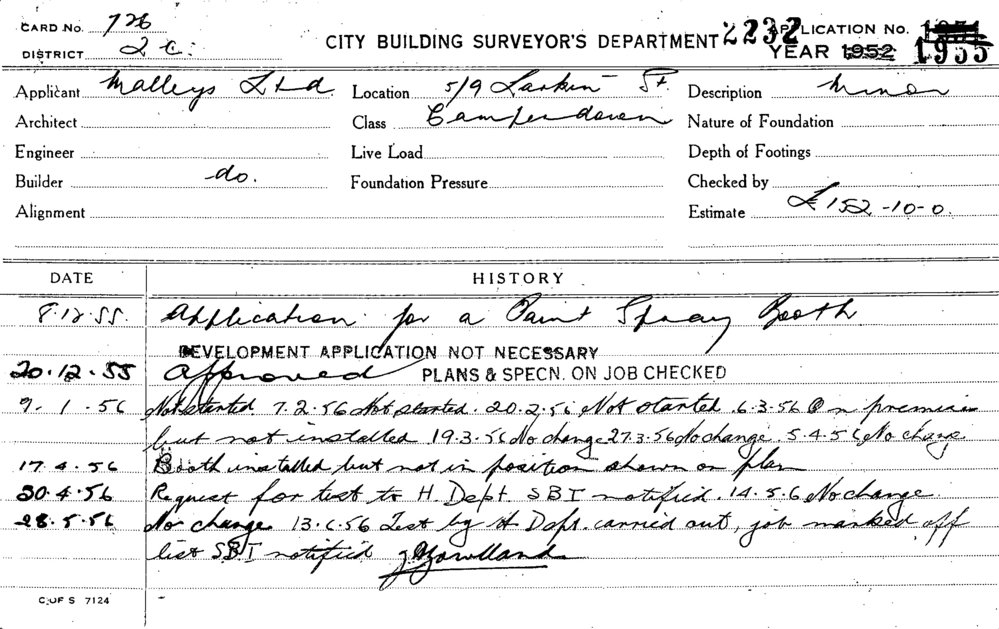 CARD No. 726
DISTRICT 2 C.
CITY BUILDING SURVEYOR'S DEPARTMENT 2232 APPLICATION NO.
YEAR 1952 1955
Applicant Malleys Ltd. Location 5/9 Larkin St. Description Minor
Architect Class Camperdown Nature of Foundation
Engineer Live Load Depth of Footings
Builder do. Foundation Pressure Checked by
Alignment Estimate £152-10-0.
DATE HISTORY
8.12.55. Application for a Paint Spray Booth
DEVELOPMENT APPLICATION NOT NECESSARY
20.12.55 Approved PLANS & SPECN. ON JOB CHECKED
9.1.56 Not started 7.2.56 Not started. 20.2.56 Not started. 6.3.56 On premises
but not installed 19.3.56 No change 27.3.56 No change. 5.4.56 No change
17.4.56 Booth installed but not in position shown on plan
30.4.56 Request for test to H. Dept. SBI notified. 14.5.6 No change
28.5.56 No change 13.6.56 Test by H Dept. carried out, job marked off
list SBI notified
C. OF S 7124